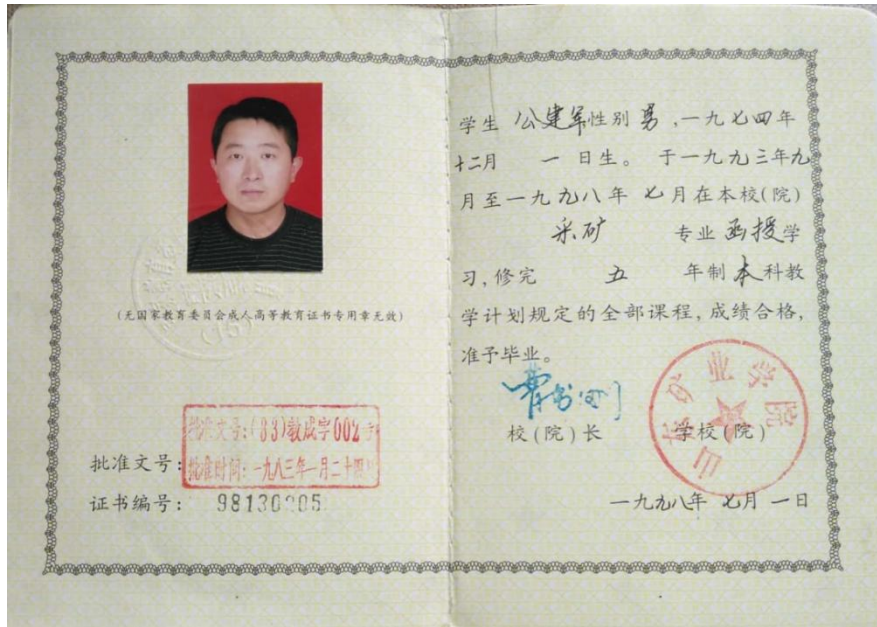 (无国家教育委员会成人高等教育证书专用章无效)
批准文号:(83)教成字002号
批准时间:一九八三年一月二十四日
批准文号:
证书编号: 98130205
学生 公建军性别 男 ,一九七四年
十二月 一 日生。 于一九九三年九
月至一九九八年 七 月在本校(院)
采矿 专业 函授学
习,修完 五 年制 本 科教
学计划规定的全部课程,成绩合格,
准予毕业。
校(院)长 学校(院)
山东矿业学院
一九九八年 七月 一日